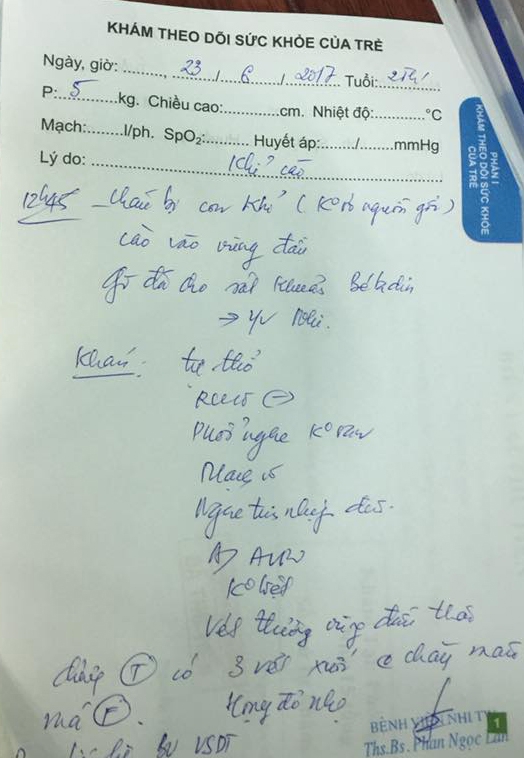 KHÁM THEO DÕI SỨC KHỎE CỦA TRẺ
Ngày, giờ: ........, 23 / 6 / 2017 Tuổi: 2Th
P: 5 kg. Chiều cao:............cm. Nhiệt độ:...........°C
Mạch:........l/ph. SpO2:.......... Huyết áp:......./.......mmHg
Lý do: Khỉ cào
PHẦN I
KHÁM THEO DÕI SỨC KHỎE
CỦA TRẺ
12h45 - cháu bị con Khỉ (K° rõ nguồn gốc)
cào vào vùng đầu
đã cho sát khuẩn Bêtadin
→ Nhi.
Khám: tự thở
Phổi nghe K°
Mạch rõ
Nghe tim nhịp đều.
K° liệt
Vết thương vùng đầu
(T) có 3 vết chảy máu
má (F). Họng đỏ nhẹ
BV
BỆNH VIỆN NHI TW
1
Ths.Bs. Phan Ngọc Lan